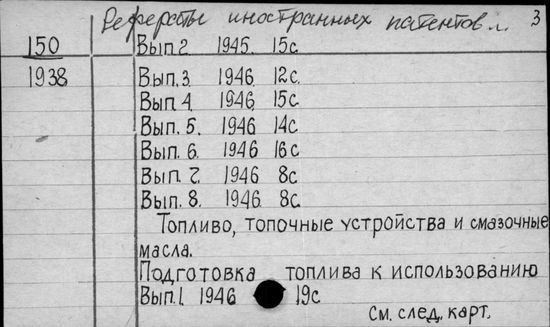 Рефераты иностранных патентов... 3
150 Вып.2 1945. 15с.
1938 Вып.3 1946. 12с.
Вып.4. 1946. 15с.
Вып.5. 1946 14с
Вып.6. 1946 16с
Вып.7. 1946 8с
Вып.8. 1946 8с.
Топливо, топочные устройства и смазочные
масла.
Подготовка топлива к использованию
Вып.1. 1946 19с
См. след. карт.